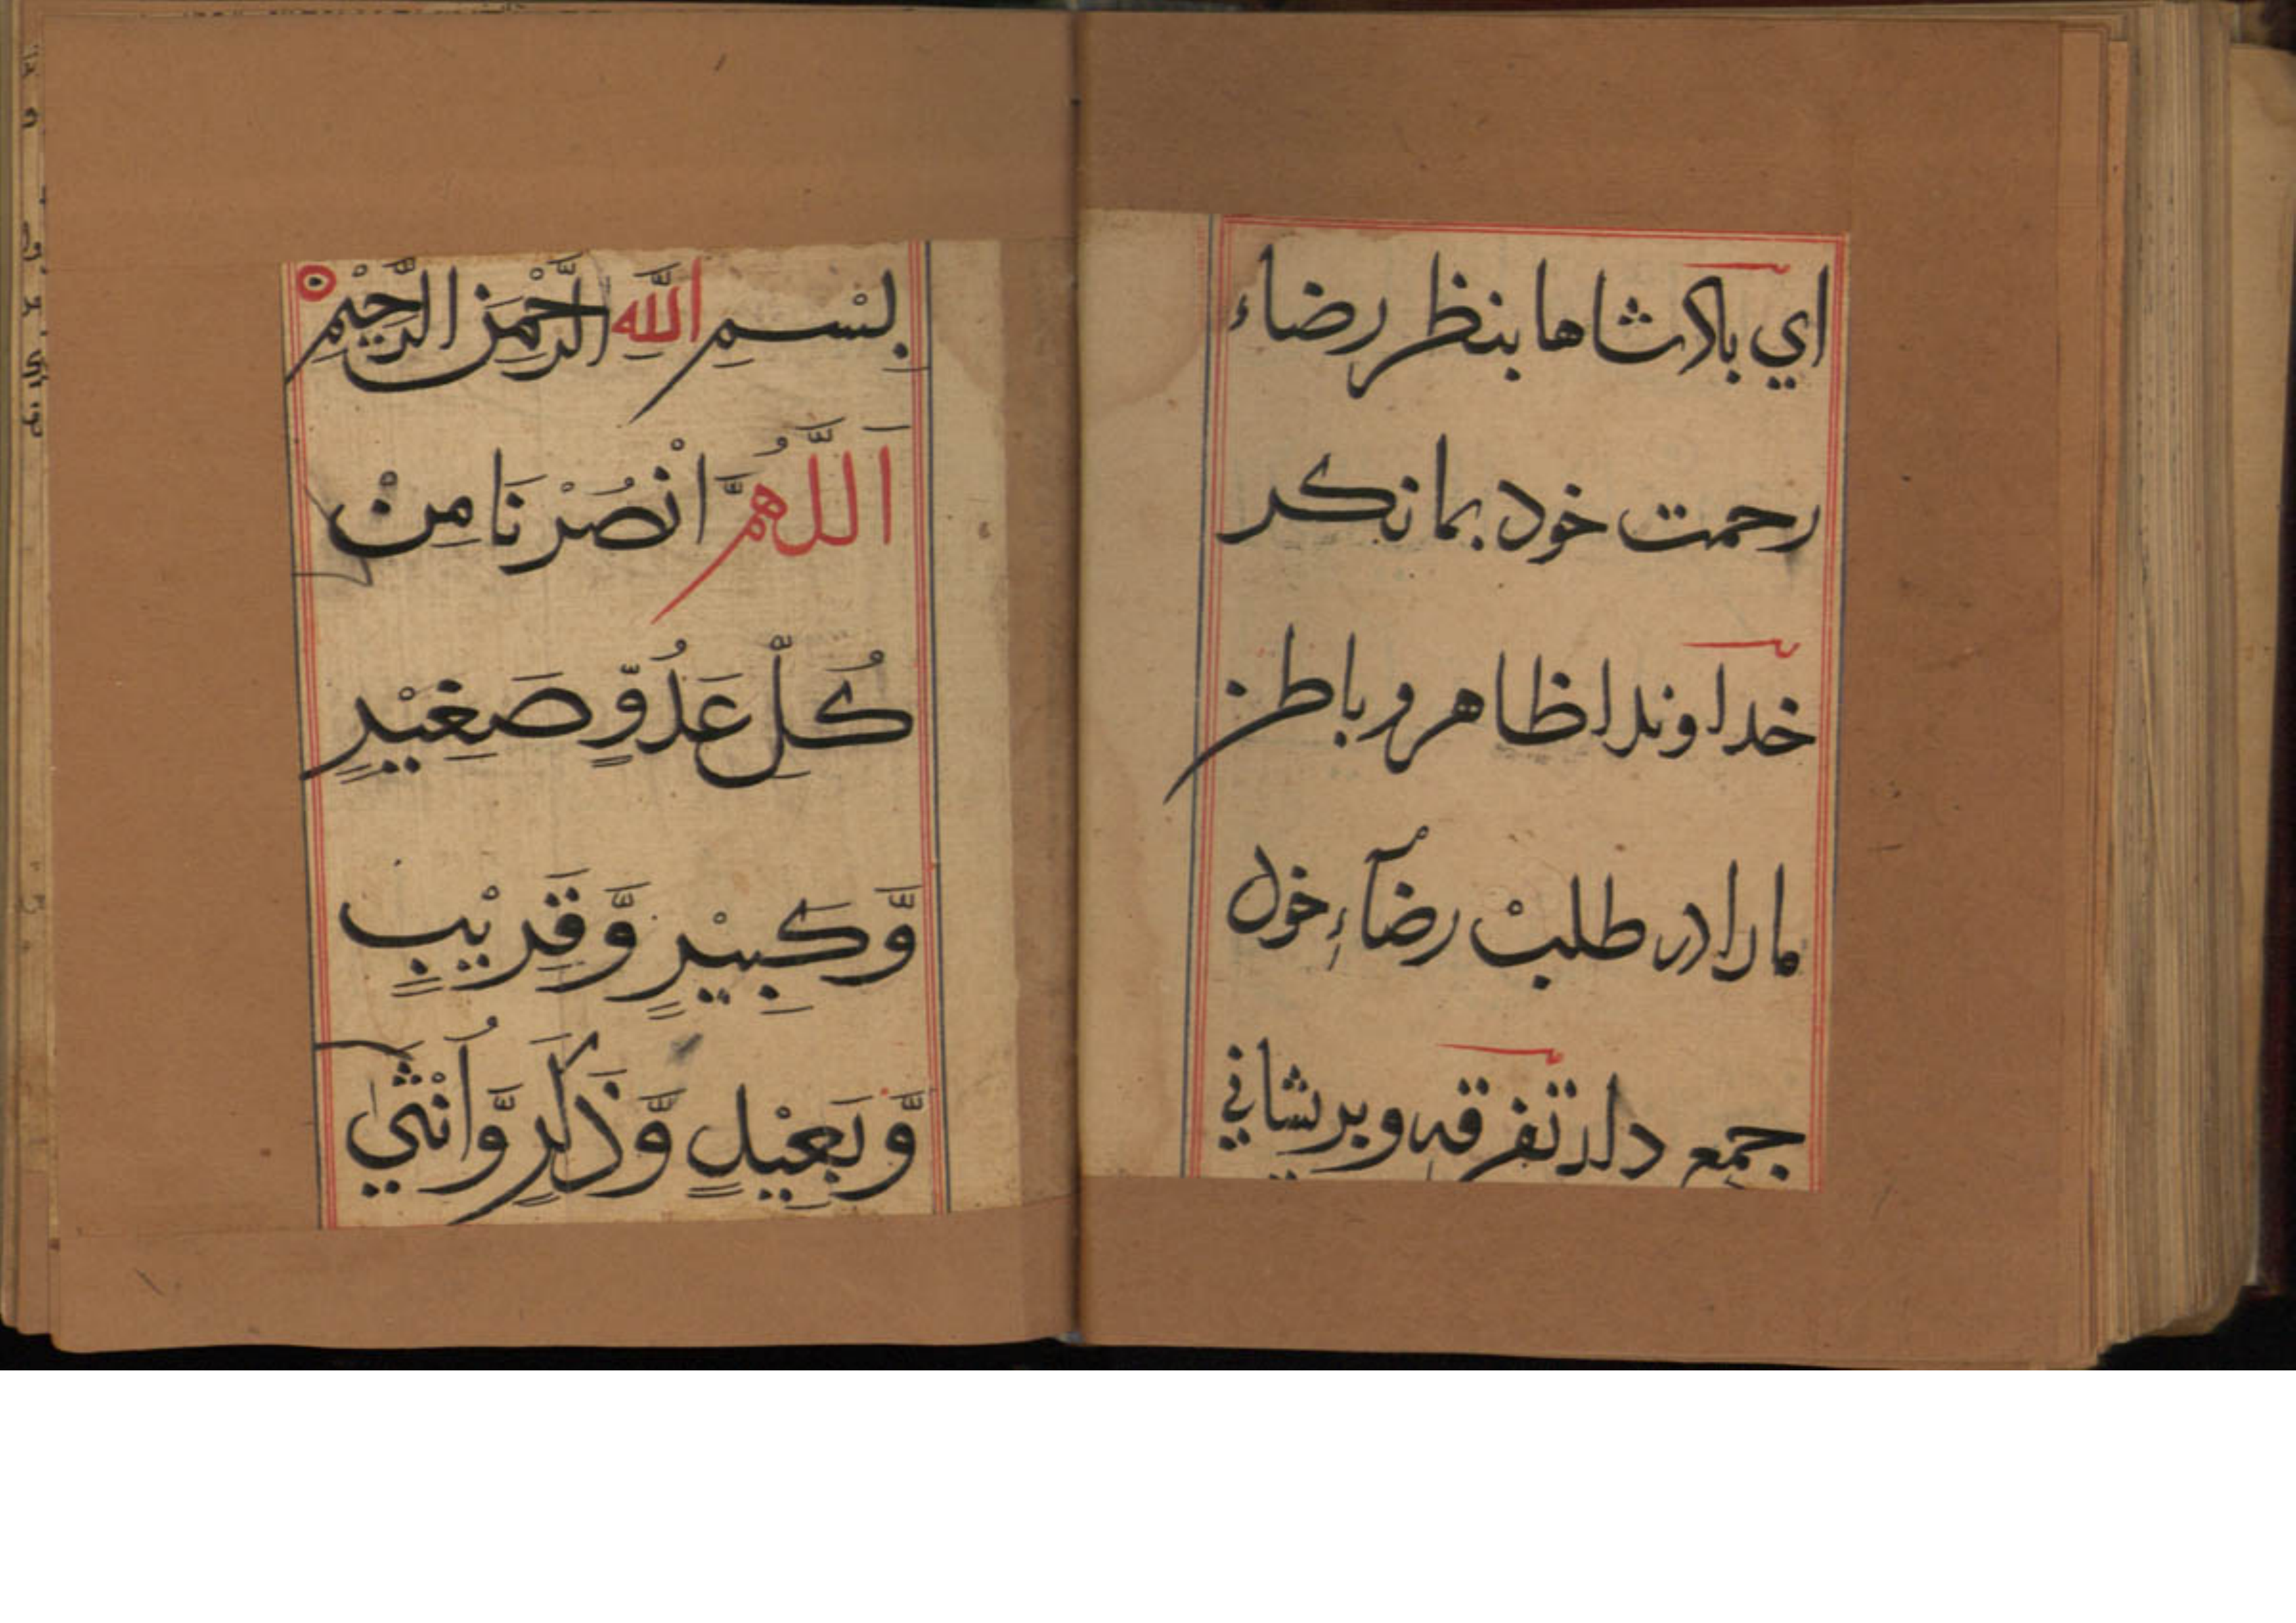 اي بادشاها بنظر رضاء
رحمت خود بما نكر
خداوندا ظاهر و باطن
ما را در طلبْ رضآءِ خود
جمع دار تفرقه و بريشاني
بِسْمِ اللّٰهِ الرَّحْمٰنِ الرَّحِيْمِ
اَللّٰهُمَّ انْصُرْنَا مِنْ
كُلِّ عَدُوٍّ صَغِيْرٍ
وَّكَبِيْرٍ وَّقَرِيْبٍ
وَّبَعِيْدٍ وَّذَكَرٍ وَّاُنْثٰي